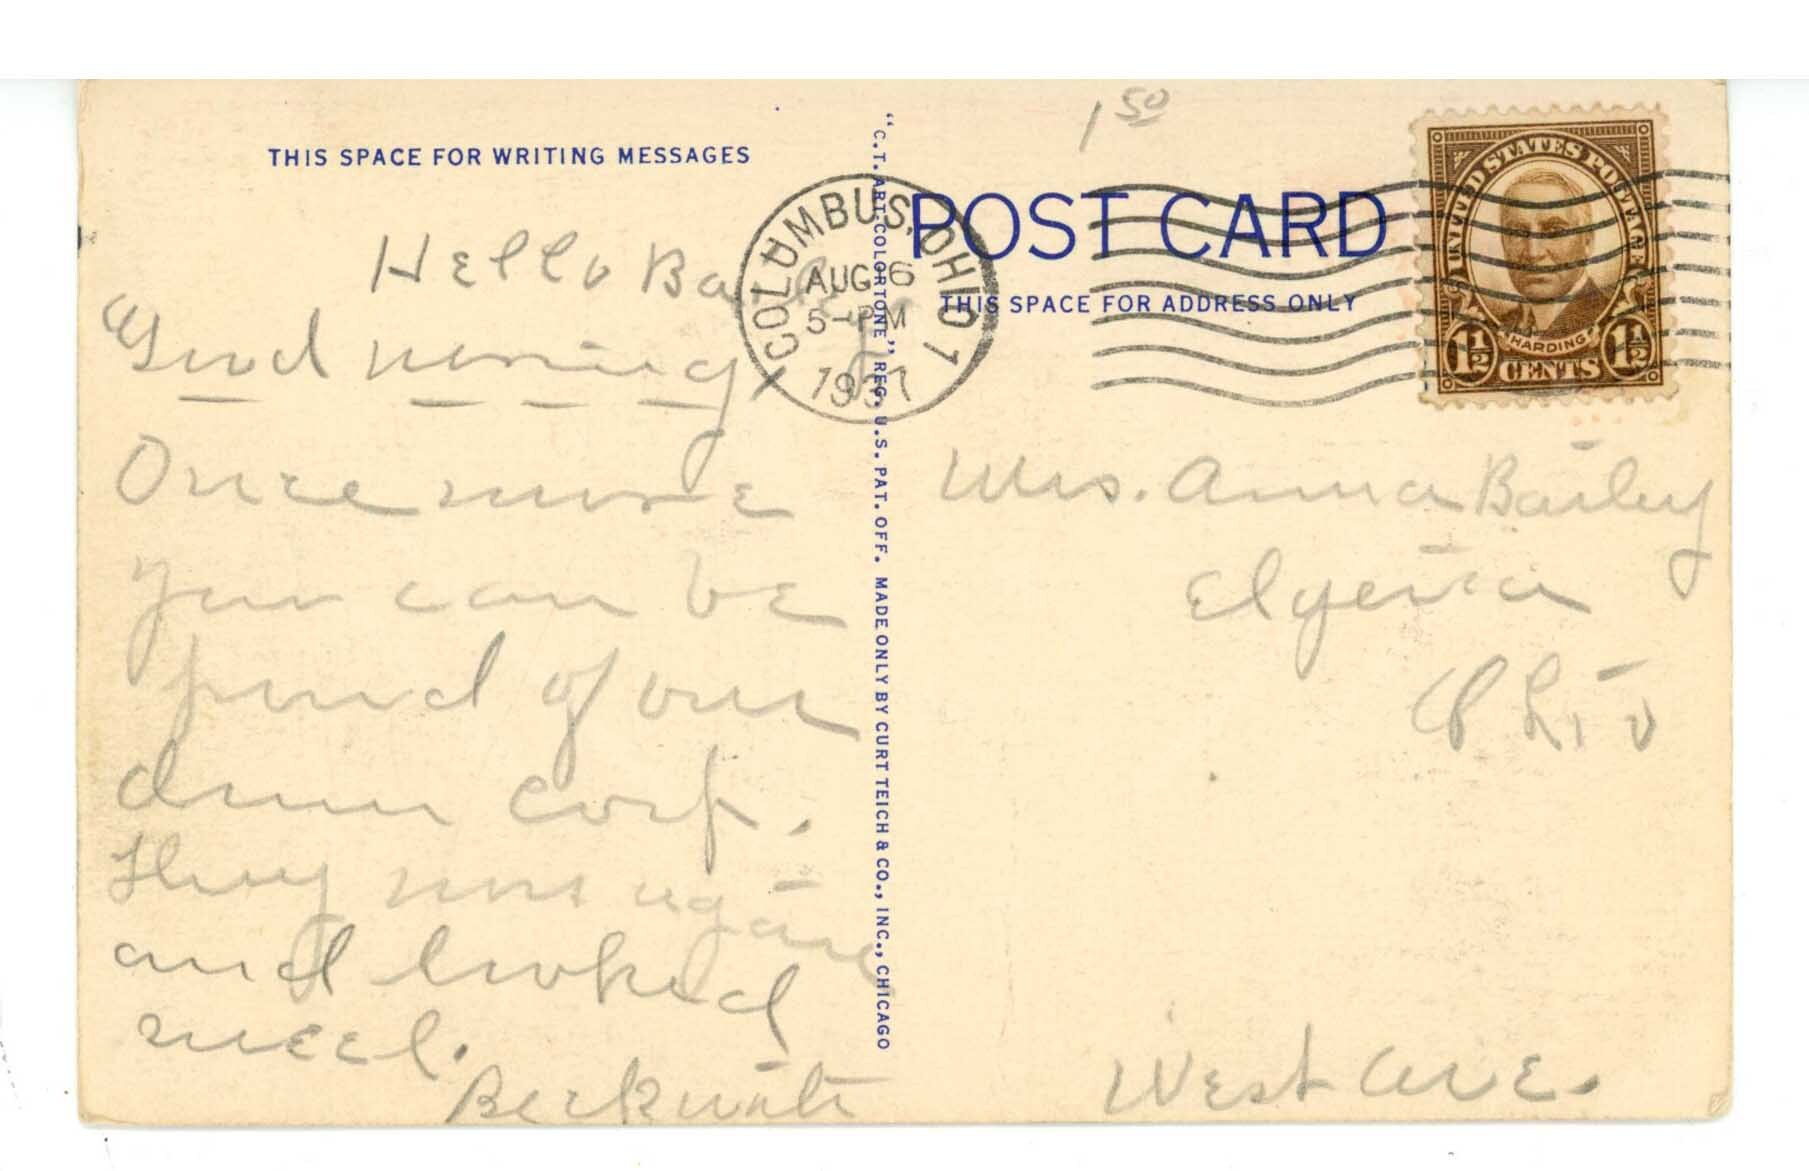 1 50
THIS SPACE FOR WRITING MESSAGES
POST CARD
THIS SPACE FOR ADDRESS ONLY
COLUMBUS, OHIO 1
AUG 6
5-PM
1937
UNITED STATES POSTAGE
HARDING
1½ CENTS 1½
"C.T. ART-COLORTONE" REG. U.S. PAT. OFF. MADE ONLY BY CURT TEICH & CO., INC., CHICAGO
Hello
"Good morning
Once more
you can be
proud of our
drum corp.
They won again
and looked
neet.
Beckwith
Mrs. Anna Bailey
Elyeria
Ohio
West Ave.